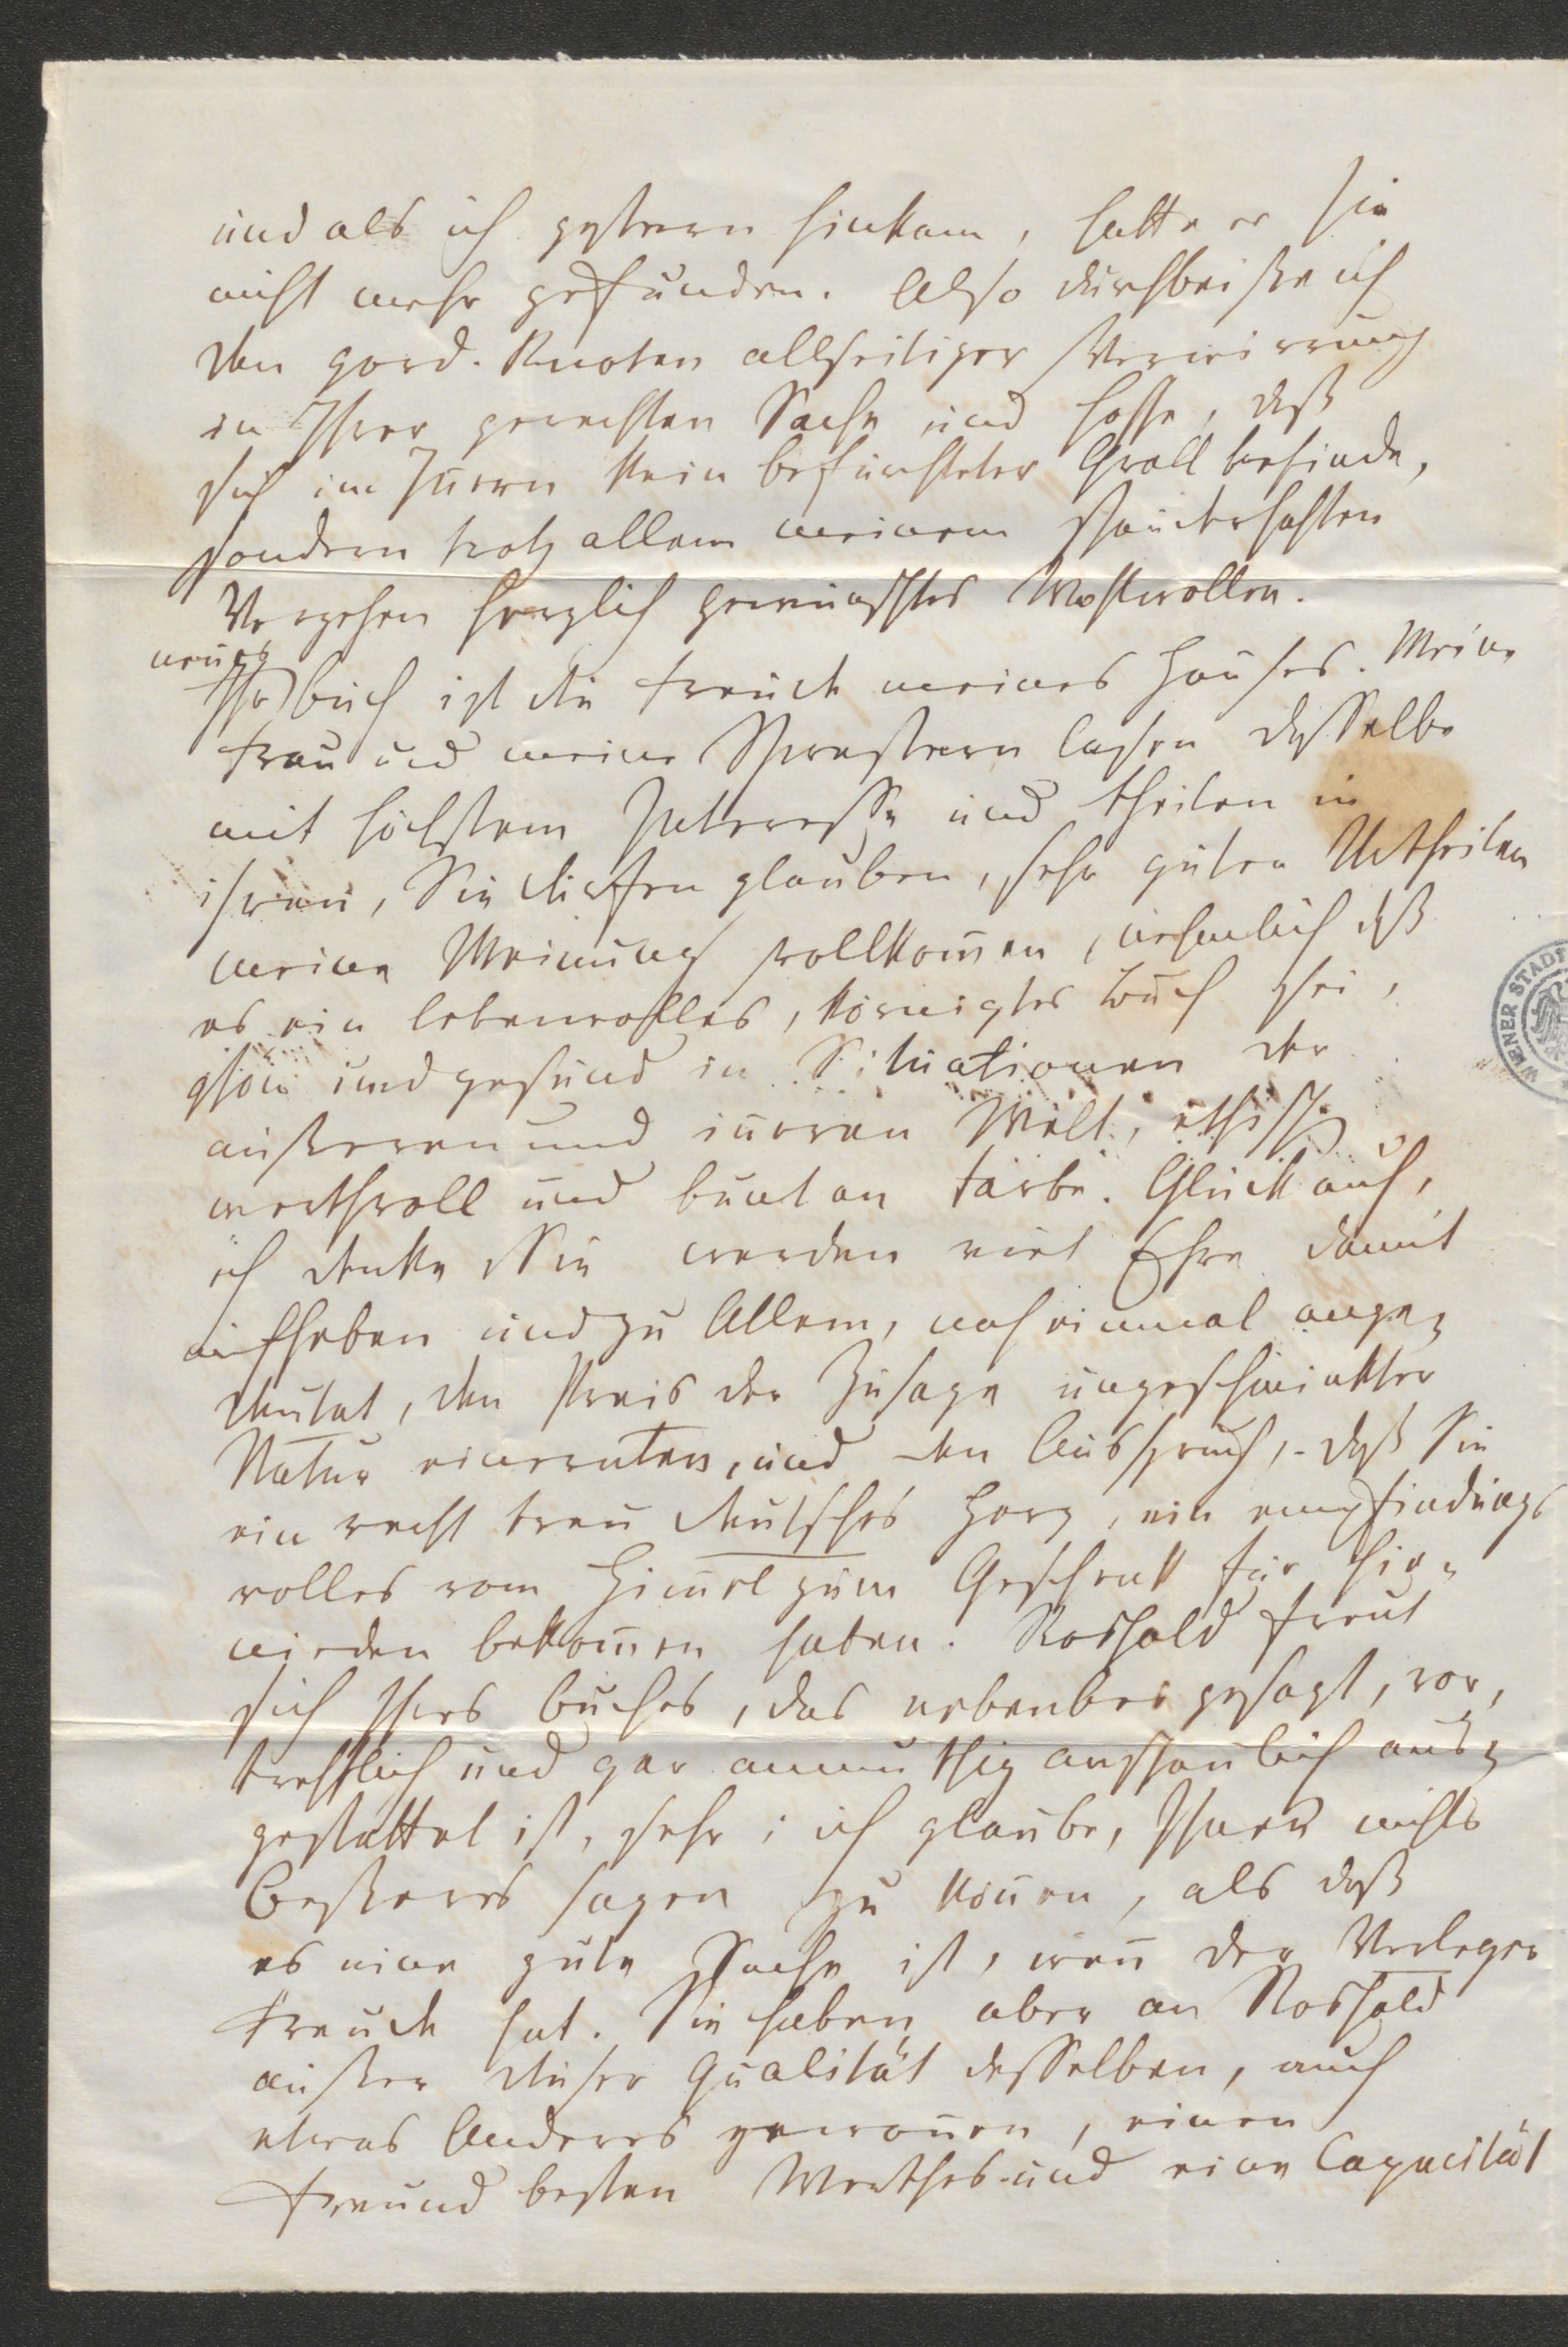 und als ich gestern hinkam, hatte er sie
nicht mehr gefunden. Also durchbeiße ich
den gord. Knoten allseitiger Verwirrung
in Ihrer gerechten Sache und hoffe, daß
sich im Innern kein befürchteter Groll befinde,
sondern trotz allem meinem
Vergehen herzlich gewünschtes Wohlwollen.
neues
Ihr Buch ist die Freude meines Hauses. Meine
Frau und meine Schwestern lasen dasselbe
mit höchstem Interesse und theilen in
ihren, Sie dürfen glauben, sehr guten Urtheilen
meine Meinung vollkom̅en, nehmlich daß
es ein lebenvolles, körnigtes Buch sei,
schön und gesund in Situationen der
äußeren und in̅eren Welt, ethisch
werthvoll und bunt an Farbe. Glück auf,
ich denke Sie werden viel Ehre damit
aufheben und zu Allem, noch einmal ange-
deutet, den Preis der Zusage ungeschminkter
Natur einernten, und den Ausspruch, - daß Sie
ein recht treu deutsches Herz, ein empfindungs
volles vom Him̅el zum Geschenk für hie-
nieden bekom̅en haben. Roshold freut
sich Ihres Buches, das nebenbei gesagt, vor-
trefflich und gar anmuthig anschaulich aus-
gestattet ist, sehr; ich glaube, Ihnen nichts
Beßeres sagen zu kön̅en, als daß
es eine gute Sache ist, wen̅ der Verleger
Freude hat. Sie haben aber an Roshold
außer dieser Qualität desselben, auch
etwas Anderes gewon̅en, einen
Freund besten Werthes und eine Capacität
WIENER STADT